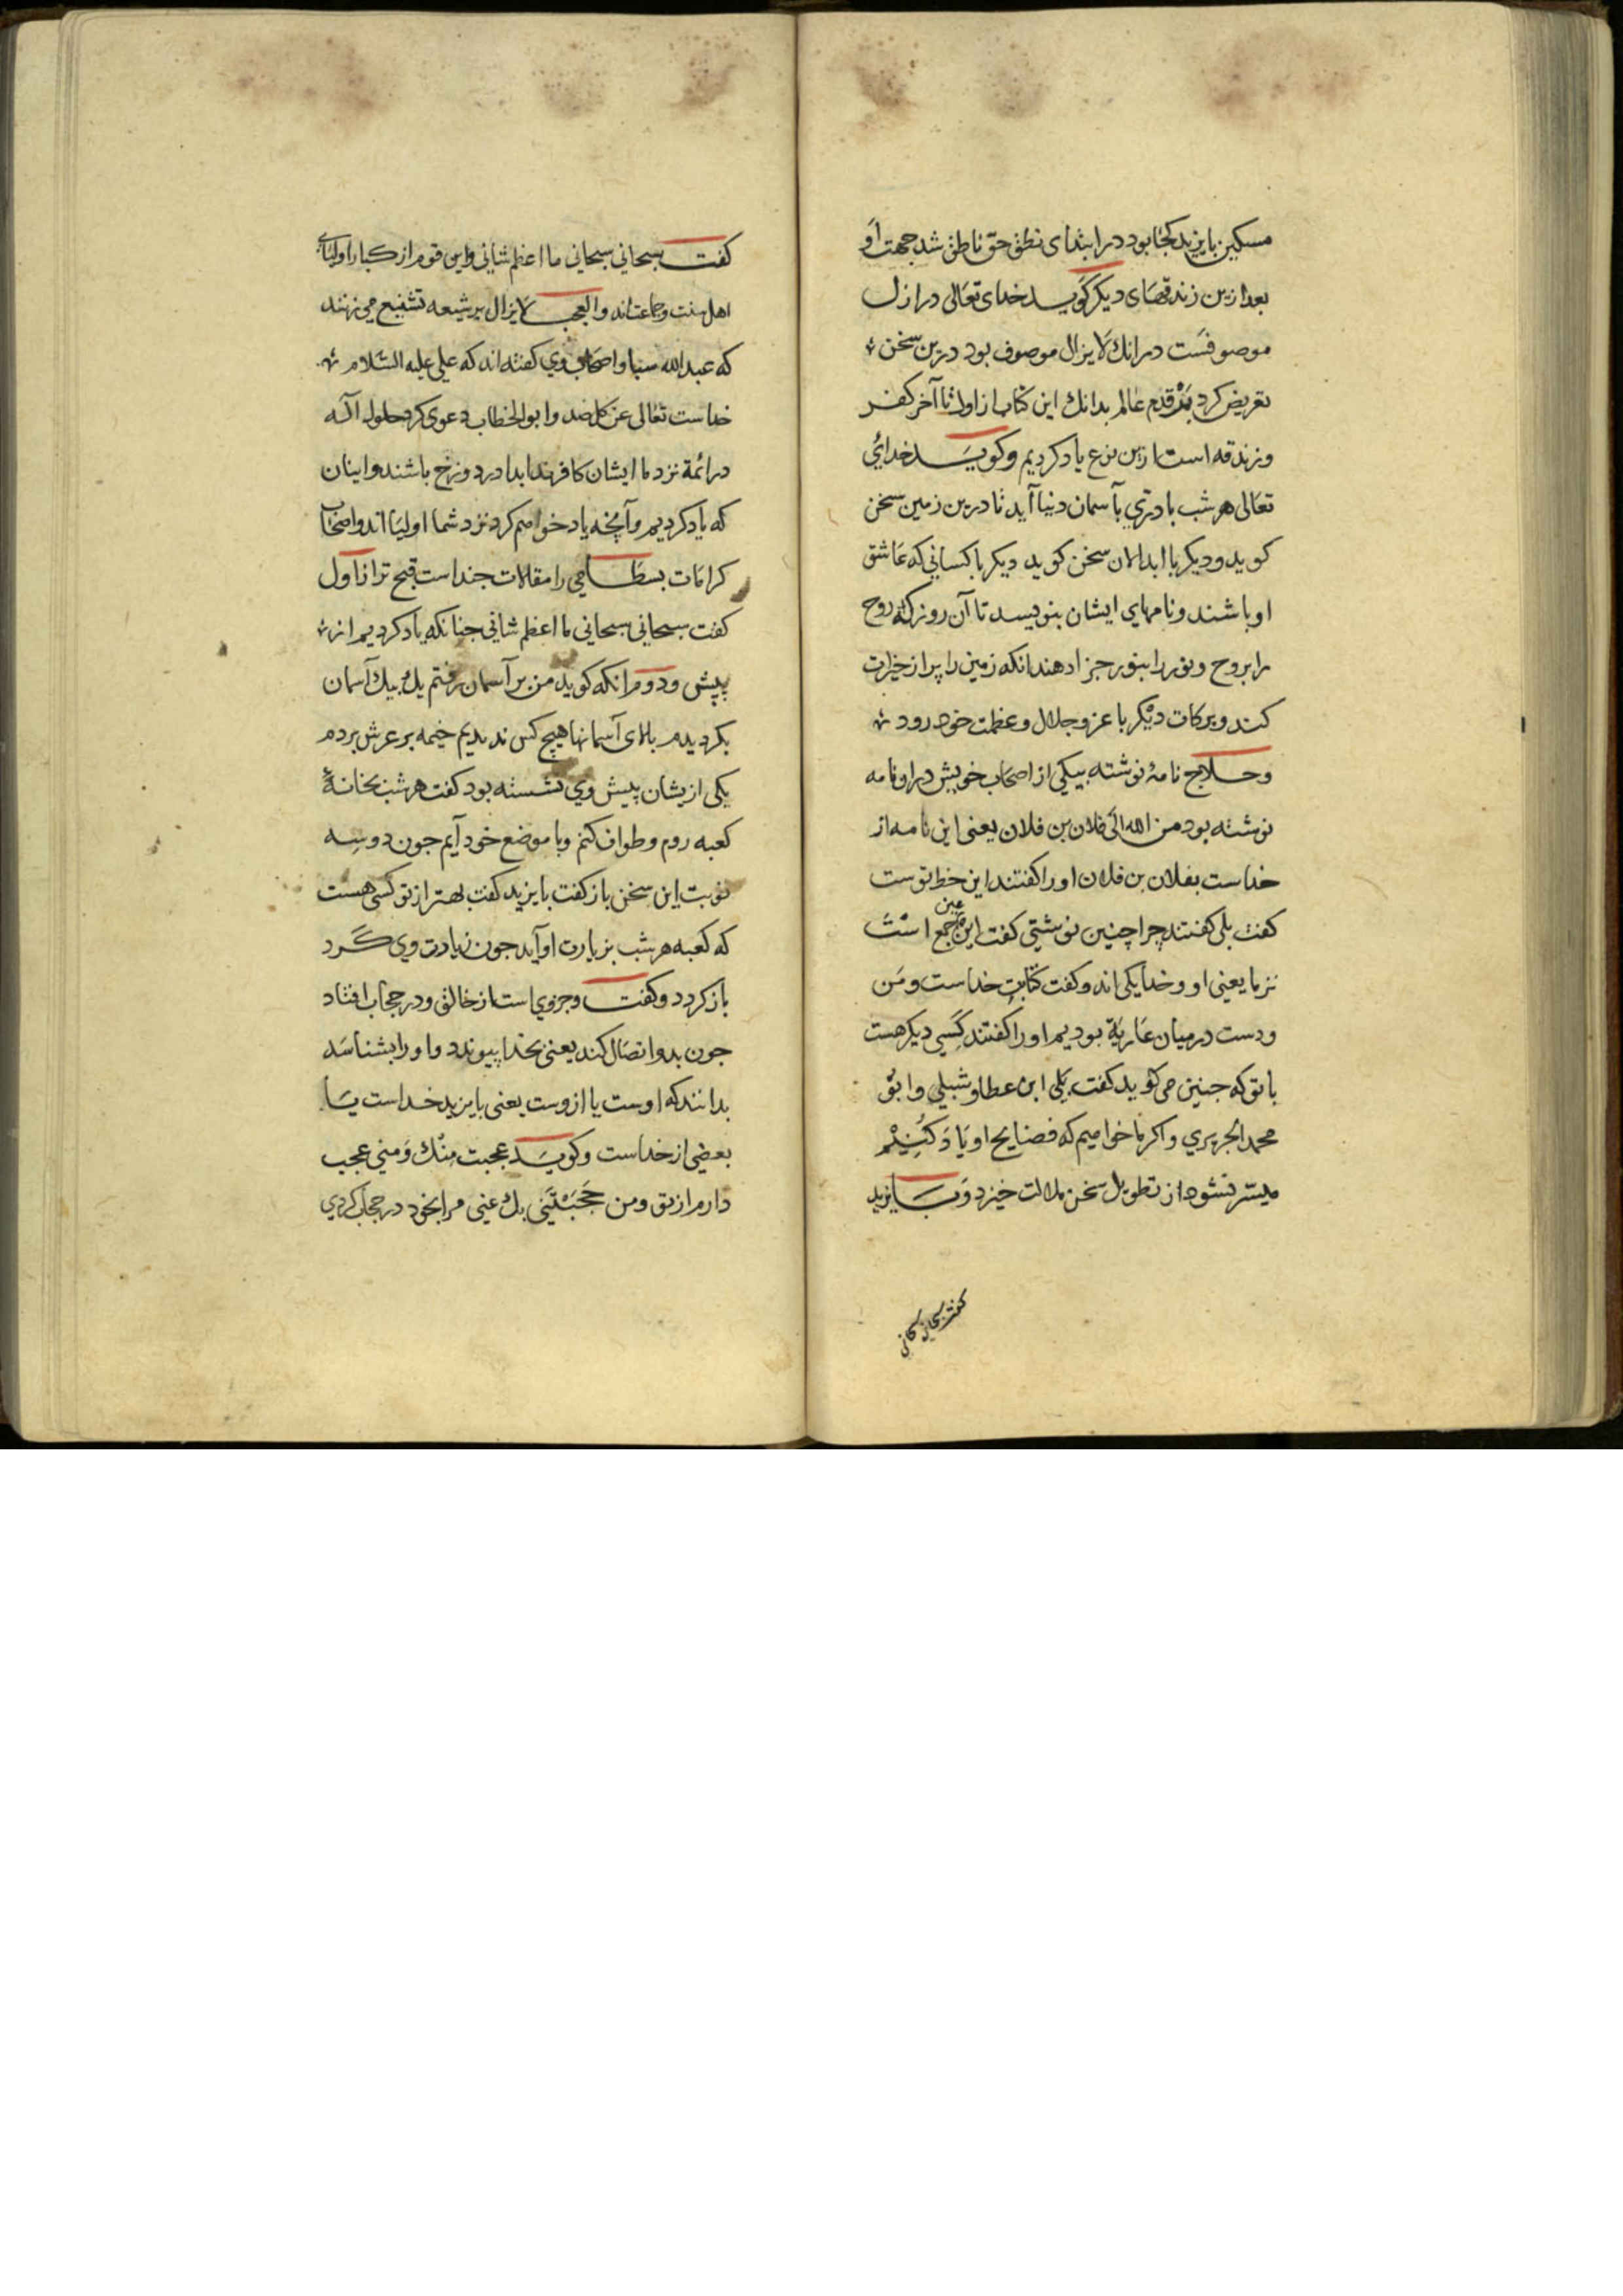 مسکین بایزید کجا بود در ابتدای نطق حق ناطق شد جهت او
بعد ازین زندقهای دیکر کوید خدای تعالی در ازل
موصوفست درانك لا یزال موصوف بود درین سخن
تعریض کرد بقدم عالم بدانك این کتاب از اول تا آخر کفر
و زندقه است ازین نوع یاد کردیم و کوید خدای
تعالی هر شب بآسمان دنیا آید تا درین زمین سخن
کوید و دیکر با ابدالان سخن کوید دیکر با کسانی که عاشق
او باشند و نامهای ایشان بنویسد تا آن روز که روح
را بروح و نور را بنور جزا دهند انکه زمین را پر از خیرات
کند و برکات دیکر با عز و جلال و عظمت خود رود
و حلاج نامهٔ نوشته بیکی از اصحاب خویش در او نامه
نوشته بود من الله الی فلان بن فلان یعنی این نامه از
خداست بفلان بن فلان او را کفتند این خط توست
کفت بلی کفتند چرا چنین نوشتی کفت این عین جمع است
نزما یعنی او و خدا یکی اند و کفت کتابت خداست و من
و دست در میان عاریة بودیم او را کفتند کسی دیکر هست
با تو که جنین می کوید کفت بلی ابن عطا و شبلی و ابو
محمد الجریری و اکر ما خواهیم که فضایح او یاد کنیم
میسر نشود از تطویل سخن ملالت خیزد و بایزید
کفت سبحانی سبحانی
کفت سبحانی سبحانی ما اعظم شانی و این قوم از کبار اولیای
اهل سنت و جماعت اند و العجب لا یزال بر شیعه تشنیع می زنند
که عبد الله سبا و اصحاب وی کفته اند که علی علیه السلام
خداست تعالی عن کل ضد و ابو الخطاب دعوی کرد حلول اله
در ائمة نزد ما ایشان کافرند ابدا در دوزخ باشند و اینان
که یاد کردیم و آنچه یاد خواهم کرد نزد شما اولیا اند و اصحاب
کرامات بسطامی را مقالات جند است قبح تر از اول
کفت سبحانی سبحانی ما اعظم شانی جنانکه یاد کردیم از
پیش و دوم انکه کوید من بر آسمان رفتم یك بیك آسمان
بکردیدم بالای آسمانها هیچ کس ندیدیم خیمه بر عرش بردم
یکی ازیشان پیش وی نشسته بود کفت هر شب بخانهٔ
کعبه روم و طواف کنم و با موضع خود آیم جون دو سه
نوبت این سخن باز کفت بایزید کفت بهتر از تو کسی هست
که کعبه هر شب بزیارت او آید جون زیارت وی کرد
باز کردد و کفت و جزوی است از خالق و در حجاب افتاد
جون بدو اتصال کند یعنی بخدا پیوندد و او را بشناسد
بدانند که اوست یا ازوست یعنی بایزید خداست یا
بعضی از خداست و کوید عجبت منك و منی عجب
دارم از تو و من حجبتنی بك عنی مرا بخود در حجاب کردی